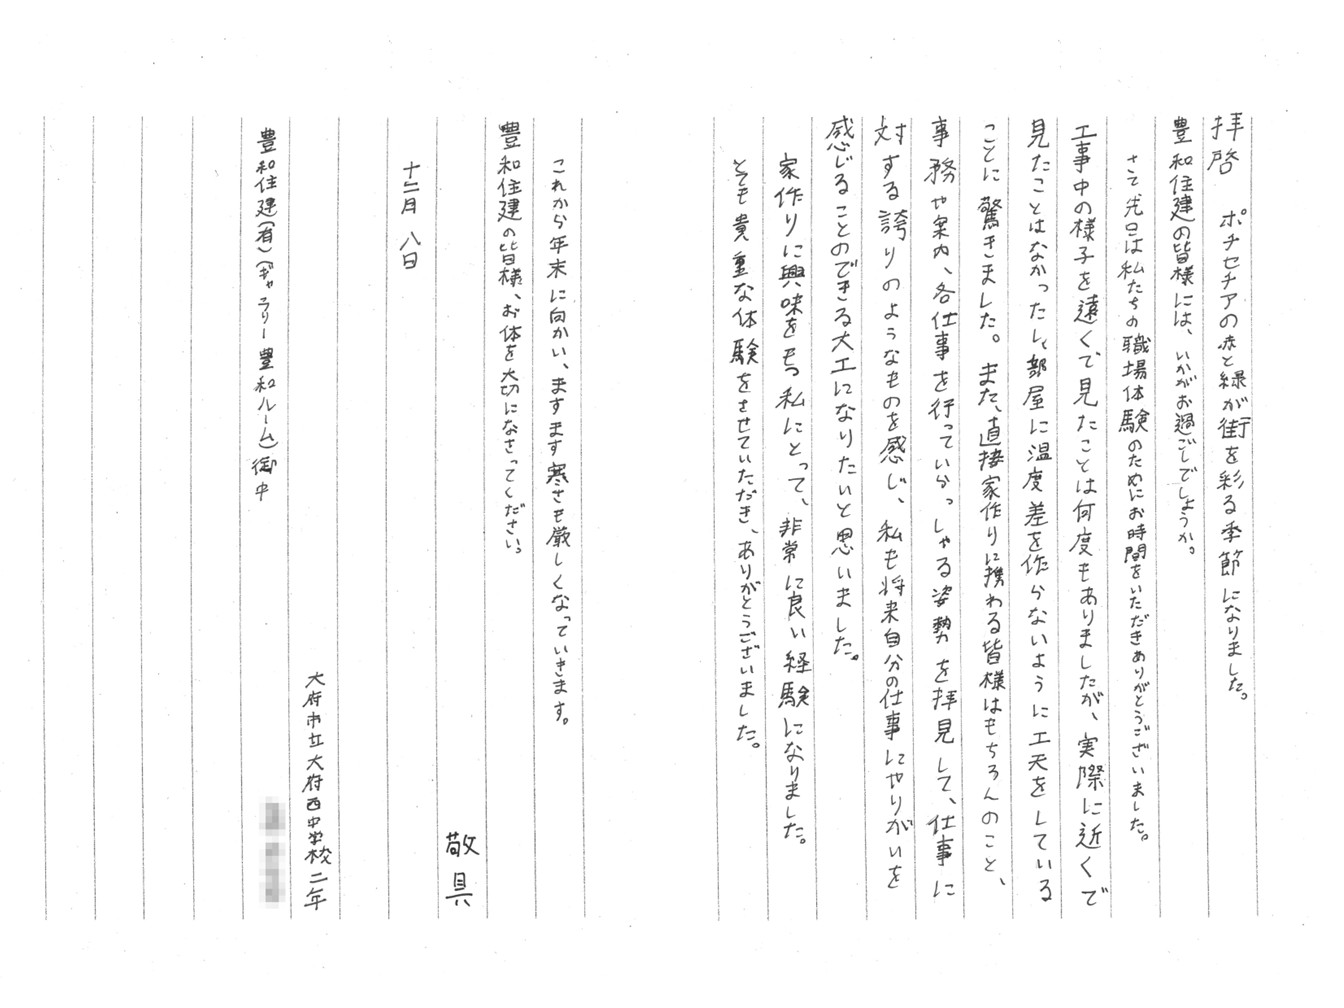 拝啓　ポチセチアの赤と緑が街を彩る季節になりました。
豊和住建の皆様には、いかがお過ごしでしょうか。
さて先日は私たちの職場体験のためにお時間をいただきありがとうございました。
工事中の様子を遠くで見たことは何度もありましたが、実際に近くで
見たことはなかったし、部屋に温度差を作らないように工夫をしている
ことに驚きました。また、直接家作りに携わる皆様はもちろんのこと、
事務や案内、各仕事を行っていらっしゃる姿勢を拝見して、仕事に
対する誇りのようなものを感じ、私も将来自分の仕事にやりがいを
感じることのできる大工になりたいと思いました。
家作りに興味をもつ私にとって、非常に良い経験になりました。
とても貴重な体験をさせていただき、ありがとうございました。
これから年末に向かい、ますます寒さも厳しくなっていきます。
豊和住建の皆様、お体を大切になさってください。
敬具
十二月八日
大府市立大府西中学校二年
豊和住建(有)(ギャラリー豊和ルーム)御中